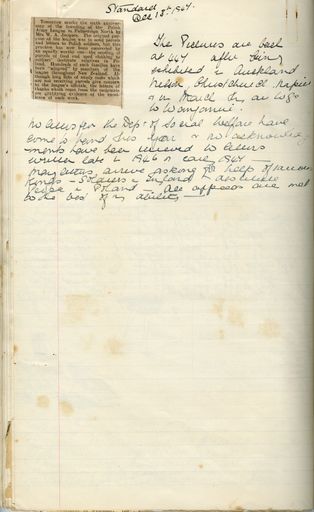 Standard
Dec 15th, 1947.
Tomorrow marks the sixth anniver-
sary of the founding of the Polish
Army League in Palmerston North by
Mrs. W. A. Jacques. The original pur-
pose of the league was to send parcels
and letters to Polish soldiers, but this
practice has now been succeeded by
an equally worthy one—that of send-
parcels of food and used clothing to
soldiers' destitute relatives in Po-
land. Hundreds of such families have
been "adopted" by members of the
league throughout New Zealand. Al-
though long lists of ready cash are
not the league's officials, the letters of
thanks which come from the recipients
are gratifying evidence of the
ness of such work.
The Pictures are back
at 447 after being
exhibited in Auckland
Nelson, Christchurch, Napier
in March they are to go
to Wanganui.
No letters for the Dept of Social Welfare have
come to hand this year & no acknowledg
ments have been received to letters
written late in 1946 or early 1947 —
Many letters arrive asking for help of various
kinds — Soldiers in England & destitute
people in Poland — All appeals are met
to the best of my ability —